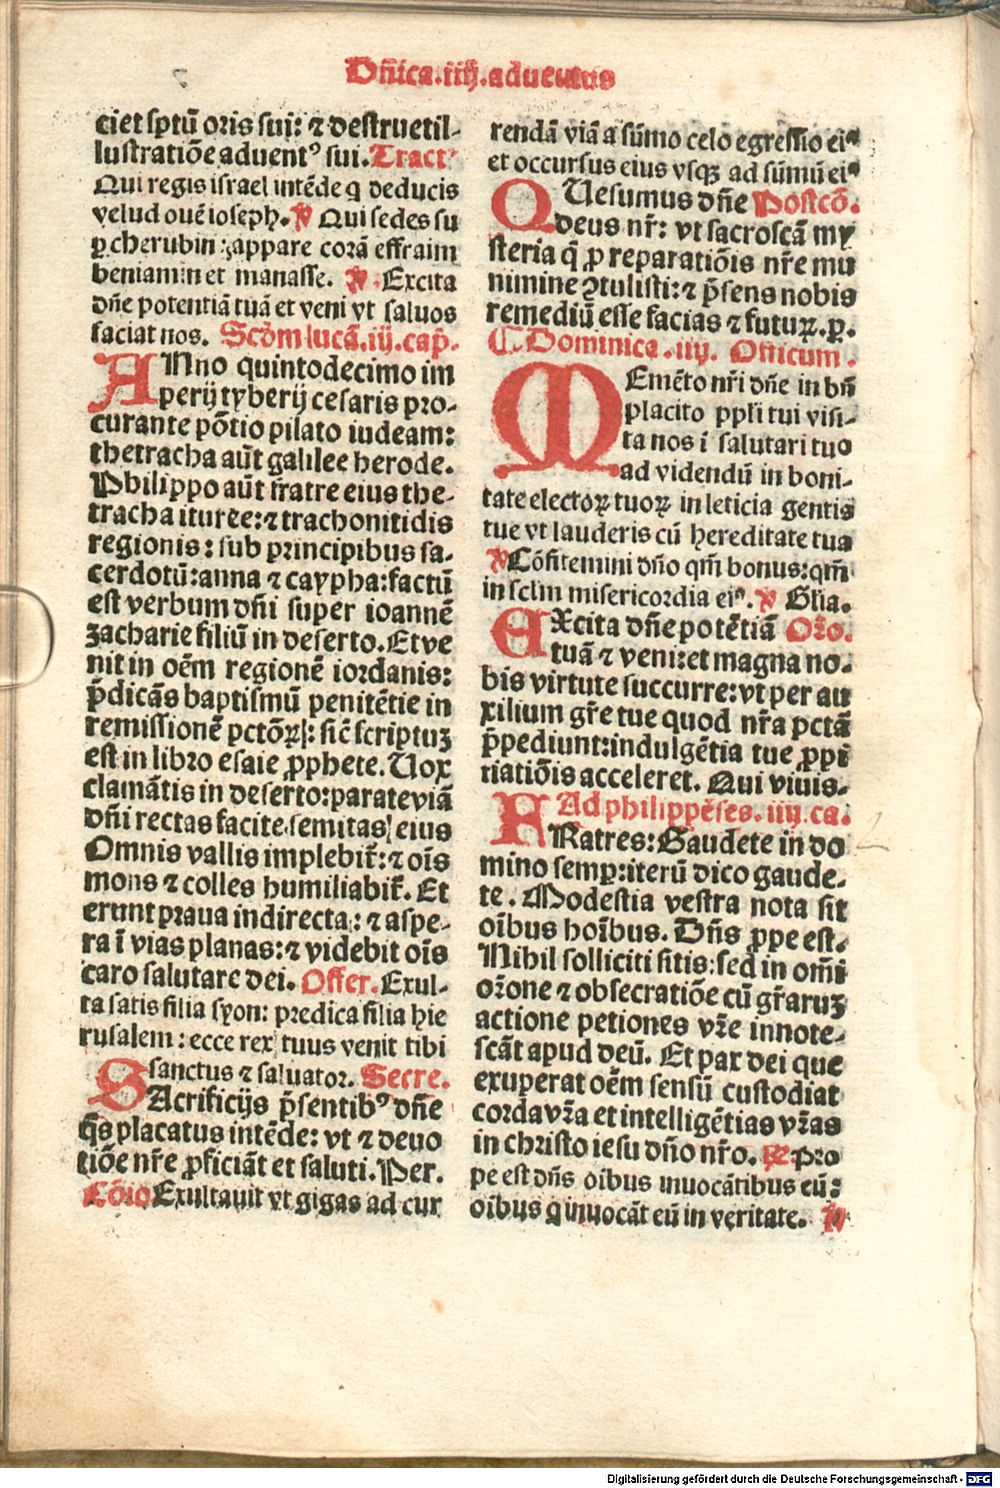 Dñica.iiij.aduentus
ciet sptũ oris sui: ⁊ destruet il-
lustratiõe aduentꝰ sui. Tractꝰ
Qui regis israel intẽde q̇ deducis
velud ouẽ ioseph. ℣ Qui sedes su
ꝑ cherubin: appare corã effraim
beniamin et manasse. ℣. Excita
dñe potentiã tuã et veni vt saluos
faciat nos. Scḋm lucã.iij.cap̃.
ANno quintodecimo im
perij tyberij cesaris pro-
curante põtio pilato iudeam:
thetracha aũt galilee herode.
Philippo aũt fratre eius the-
tracha ituree: ⁊ trachonitidis
regionis: sub principibus sa-
cerdotũ: anna ⁊ caypha: factũ
est verbum dñi super ioannẽ
zacharie filiũ in deserto. Et ve
nit in oẽm regionẽ iordanis:
p̃dicãs baptismũ penitẽtie in
remissionẽ pctõꝝ: sic̃ scriptuꝫ
est in libro esaie ꝓphete. Uox
clamãtis in deserto: parate viã
dñi rectas facite semitas eius
Omnis vallis implebit̃: ⁊ oĩs
mons ⁊ colles humiliabit̃. Et
erunt praua in directa: ⁊ aspe-
ra ĩ vias planas: ⁊ videbit oĩs
caro salutare dei. Offer. Exul-
ta satis filia syon: predica filia hie
rusalem: ecce rex tuus venit tibi
sanctus ⁊ saluator. Secre.
SAcrificijs p̃sentibꝰ dñe
q̃s placatus intẽde: vt ⁊ deuo
tiõe nr̃e ꝓficiãt et saluti. Per.
Cõio Exultauit vt gigas ad cur
rendã viã a sũmo celo egressio eiꝰ
et occursus eius vsqꝫ ad sũmũ eiꝰ
QUesumus dñe Postcõ.
deus nr̃: vt sacroscã my
steria q̃ ꝓ reparatiõis nr̃e mu
nimine ꝯtulisti: ⁊ p̃sens nobis
remediũ esse facias ⁊ futuꝝ. ꝑ.
⸿ Dominica.iiij. Officum.
MEmẽto nr̃i dñe in bñ
placito ppl̃i tui visi-
ta nos ĩ salutari tuo
ad videndũ in boni-
tate electoꝝ tuoꝝ in leticia gentis
tue vt lauderis cũ hereditate tua
℣ Cõfitemini dño qm̃ bonus: qm̃
in scl̃m misericordia eiꝰ. ℣ Gl̃ia.
EXcita dñe potẽtiã Or̃o.
tuã ⁊ veni: et magna no-
bis virtute succurre: vt per au
xilium gr̃e tue quod nr̃a pctã
p̃pediunt: indulgẽtia tue ꝓpi
tiatiõis acceleret. Qui viuis.
Ad philippẽses.iiij.ca.
FRatres: Gaudete in do
mino semꝑ: iterũ dico gaude-
te. Modestia vestra nota sit
oĩbus hoĩbus. Dñs ꝓpe est.
Nihil solliciti sitis: sed in om̃i
or̃one ⁊ obsecratiõe cũ gr̃aruꝫ
actione petiones vr̃e innote-
scãt apud deũ. Et pax dei que
exuperat oẽm sensũ custodiat
corda vr̃a et intelligẽtias vr̃as
in christo iesu dño nr̃o. ℞ Pro
pe est dñs oĩbus inuocãtibus eũ:
oĩbus q̇ inuocãt eũ in veritate. ℣
Digitalisierung gefördert durch die Deutsche Forschungsgemeinschaft - DFG